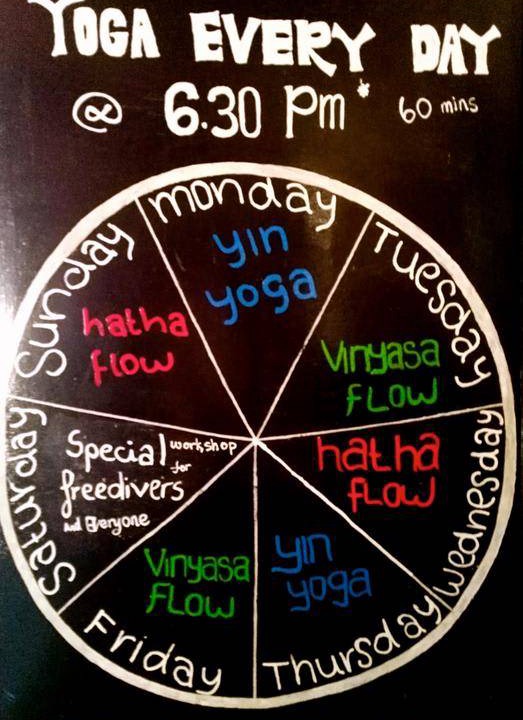 YOGA EVERY DAY
@ 6.30 Pm* 60 mins
monday
yin
yoga
Tuesday
Vinyasa
FLOW
wednesday
hatha
flow
Thursday
yin
yoga
Friday
Vinyasa
FLOW
Saturday
Special workshop
for
freedivers
And Everyone
Sunday
hatha
flow